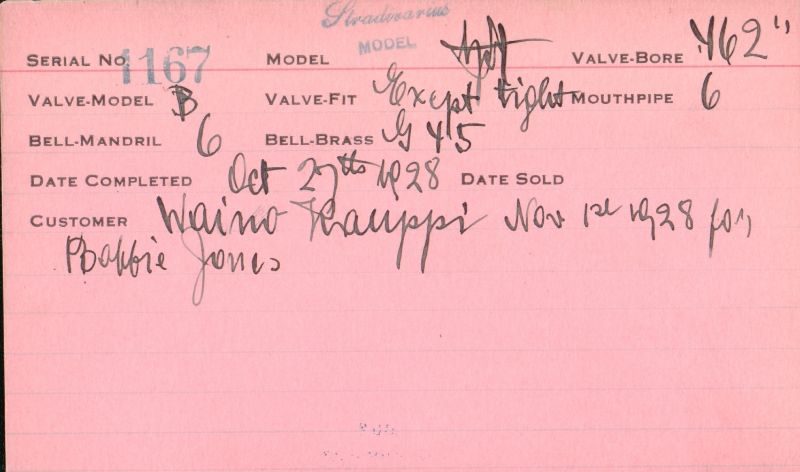 Stradivarius
MODEL
SERIAL No 1167 MODEL VALVE-BORE .462"
VALVE-MODEL B VALVE-FIT Except tight MOUTHPIPE 6
BELL-MANDRIL 6 BELL-BRASS G 45
DATE COMPLETED Oct 27th 1928 DATE SOLD
CUSTOMER Waino Kauppi Nov 1st 1928 for
Jones